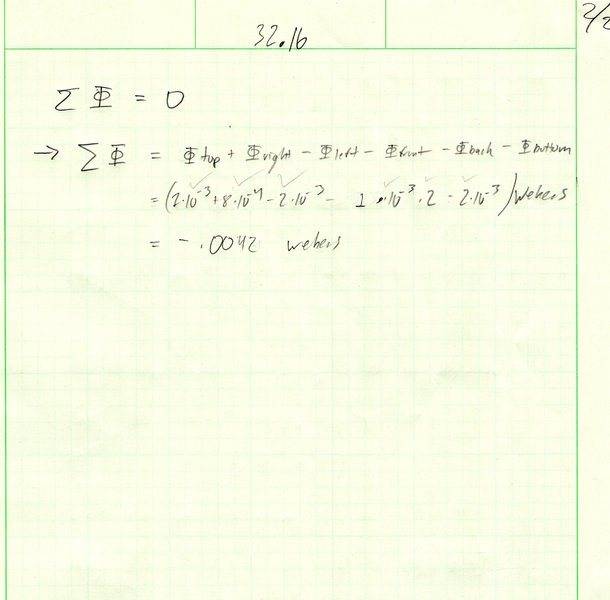 2/2
32.16
Σ Φ = 0
→ Σ Φ = Φtop + Φright - Φleft - Φfront - Φback - Φbottom
= (1·10^-3 + 8·10^-4 - 2·10^-3 - 1·10^-3·2 - 2·10^-3) Webers
= - .0042 webers